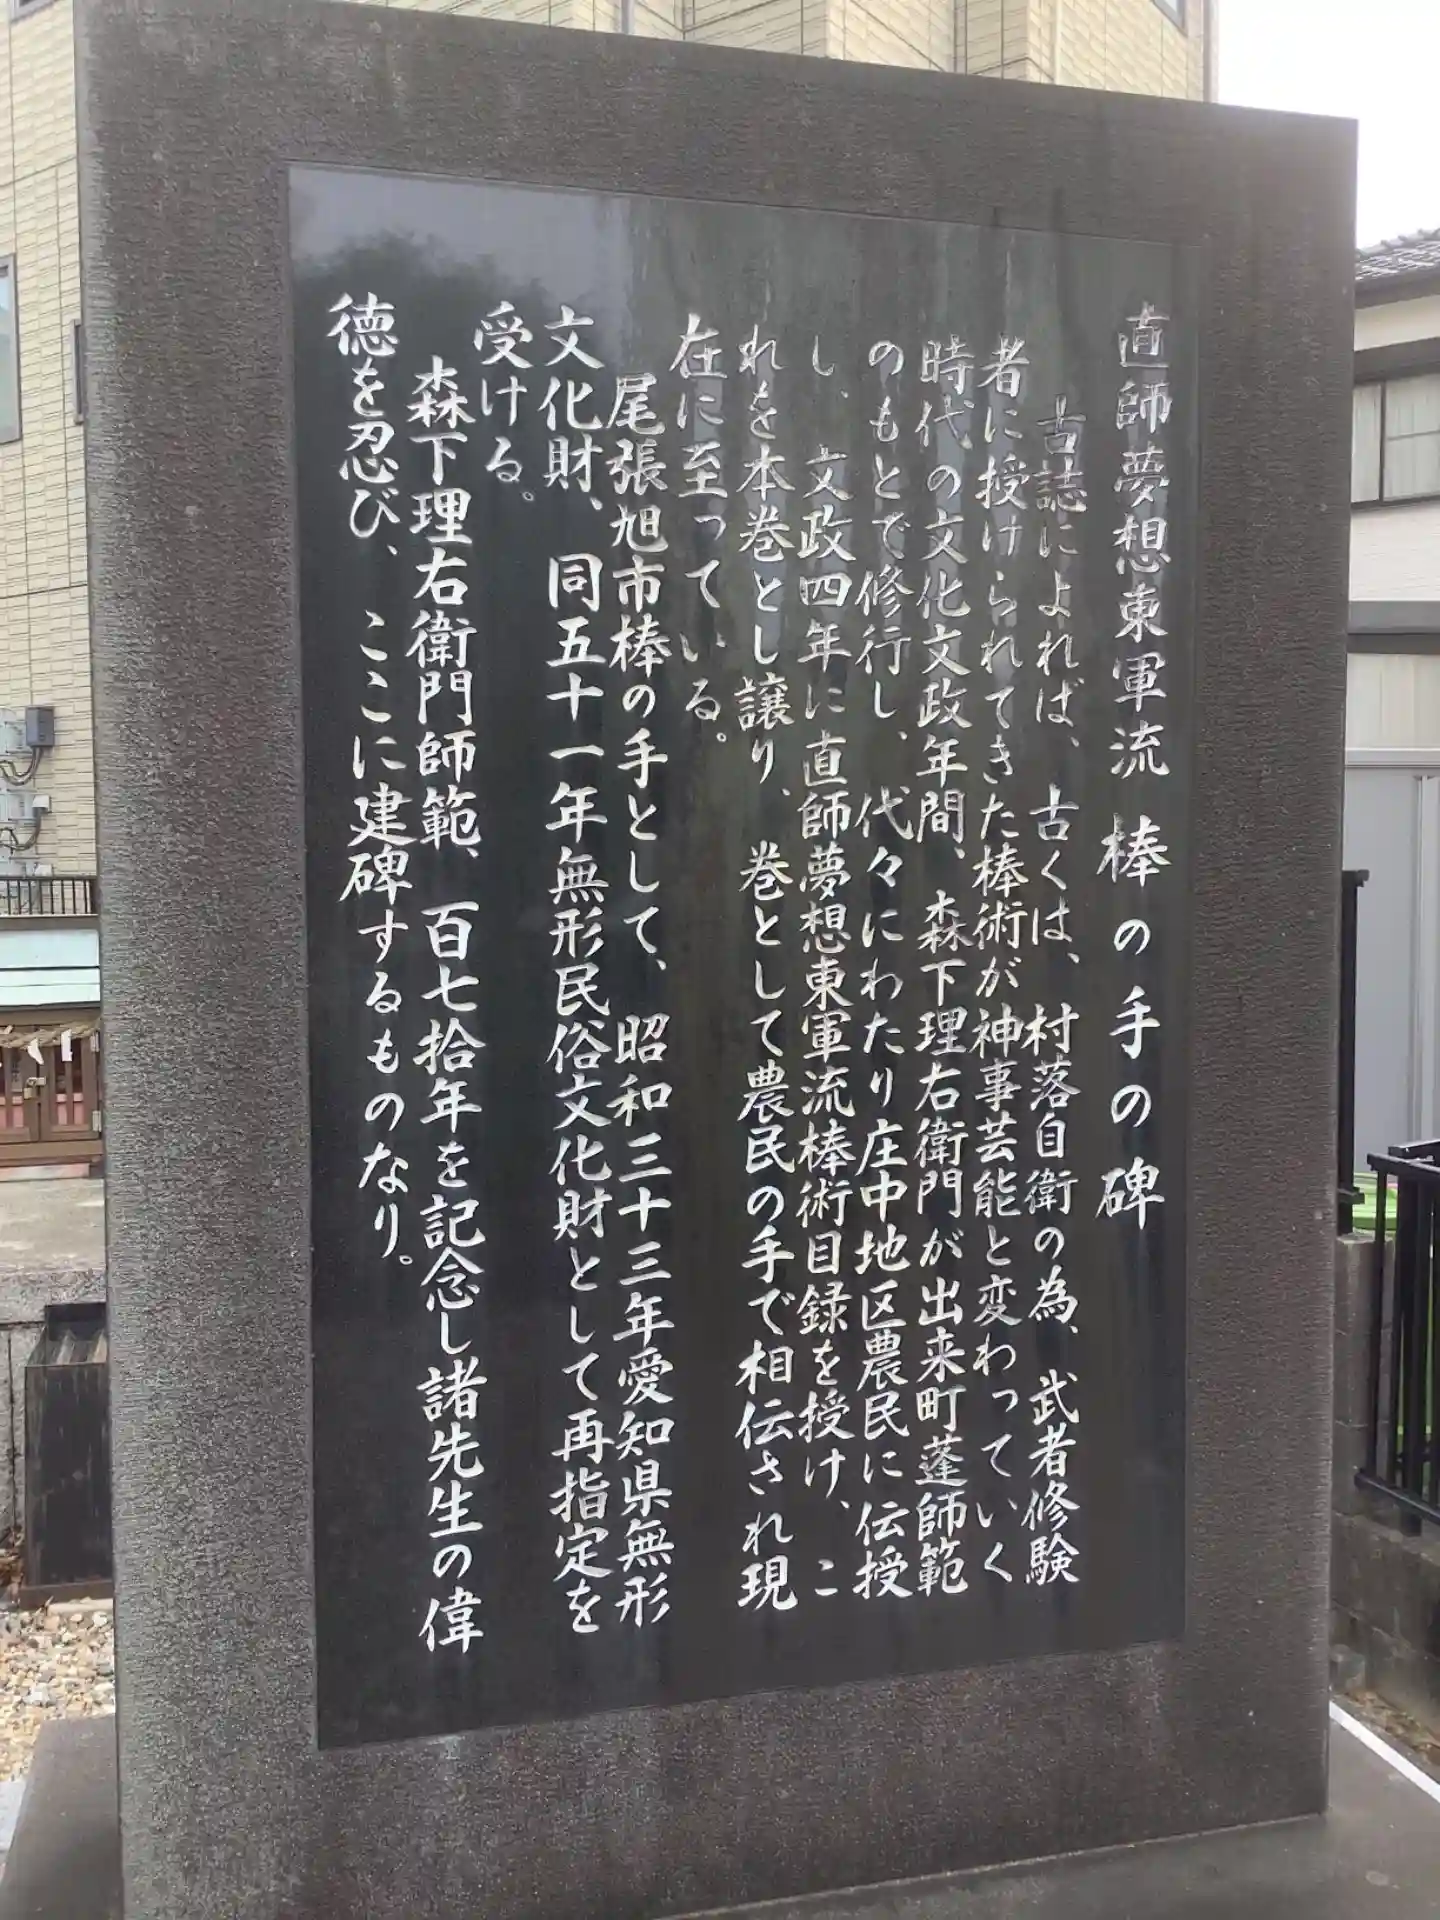 直師夢想東軍流 棒の手の碑
古誌によれば、古くは、村落自衛の為、武者修験
者に授けられてきた棒術が神事芸能と変わっていく
時代の文化文政年間、森下理右衛門が出来町蓬師範
のもとで修行し、代々にわたり庄中地区農民に伝授
し、文政四年に直師夢想東軍流棒術目録を授け、こ
れを本巻とし譲り、巻として農民の手で相伝され現
在に至っている。
尾張旭市棒の手として、昭和三十三年愛知県無形
文化財、同五十一年無形民俗文化財として再指定を
受ける。
森下理右衛門師範、百七拾年を記念し諸先生の偉
徳を忍び、ここに建碑するものなり。